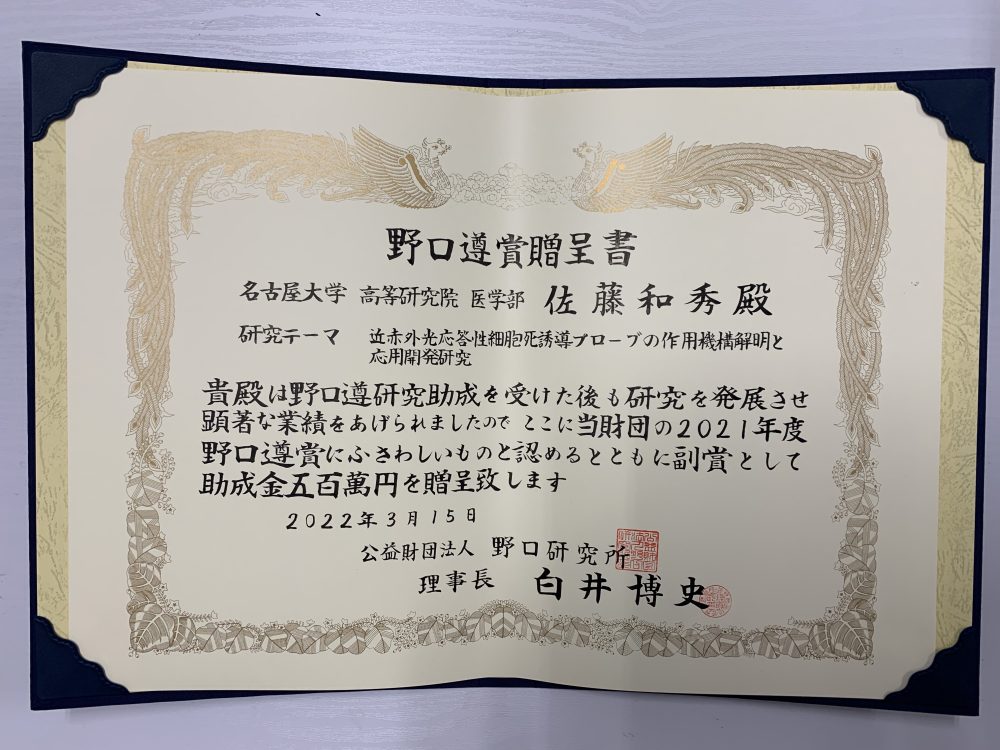 野口遵賞贈呈書
名古屋大学 高等研究院 医学部 佐藤和秀殿
研究テーマ 近赤外光応答性細胞死誘導プローブの作用機構解明と
応用開発研究
貴殿は野口遵研究助成を受けた後も研究を発展させ
顕著な業績をあげられましたので ここに当財団の2021年度
野口遵賞にふさわしいものと認めるとともに副賞として
助成金五百萬円を贈呈致します
2022年3月15日
公益財団法人 野口研究所
理事長 白井博史